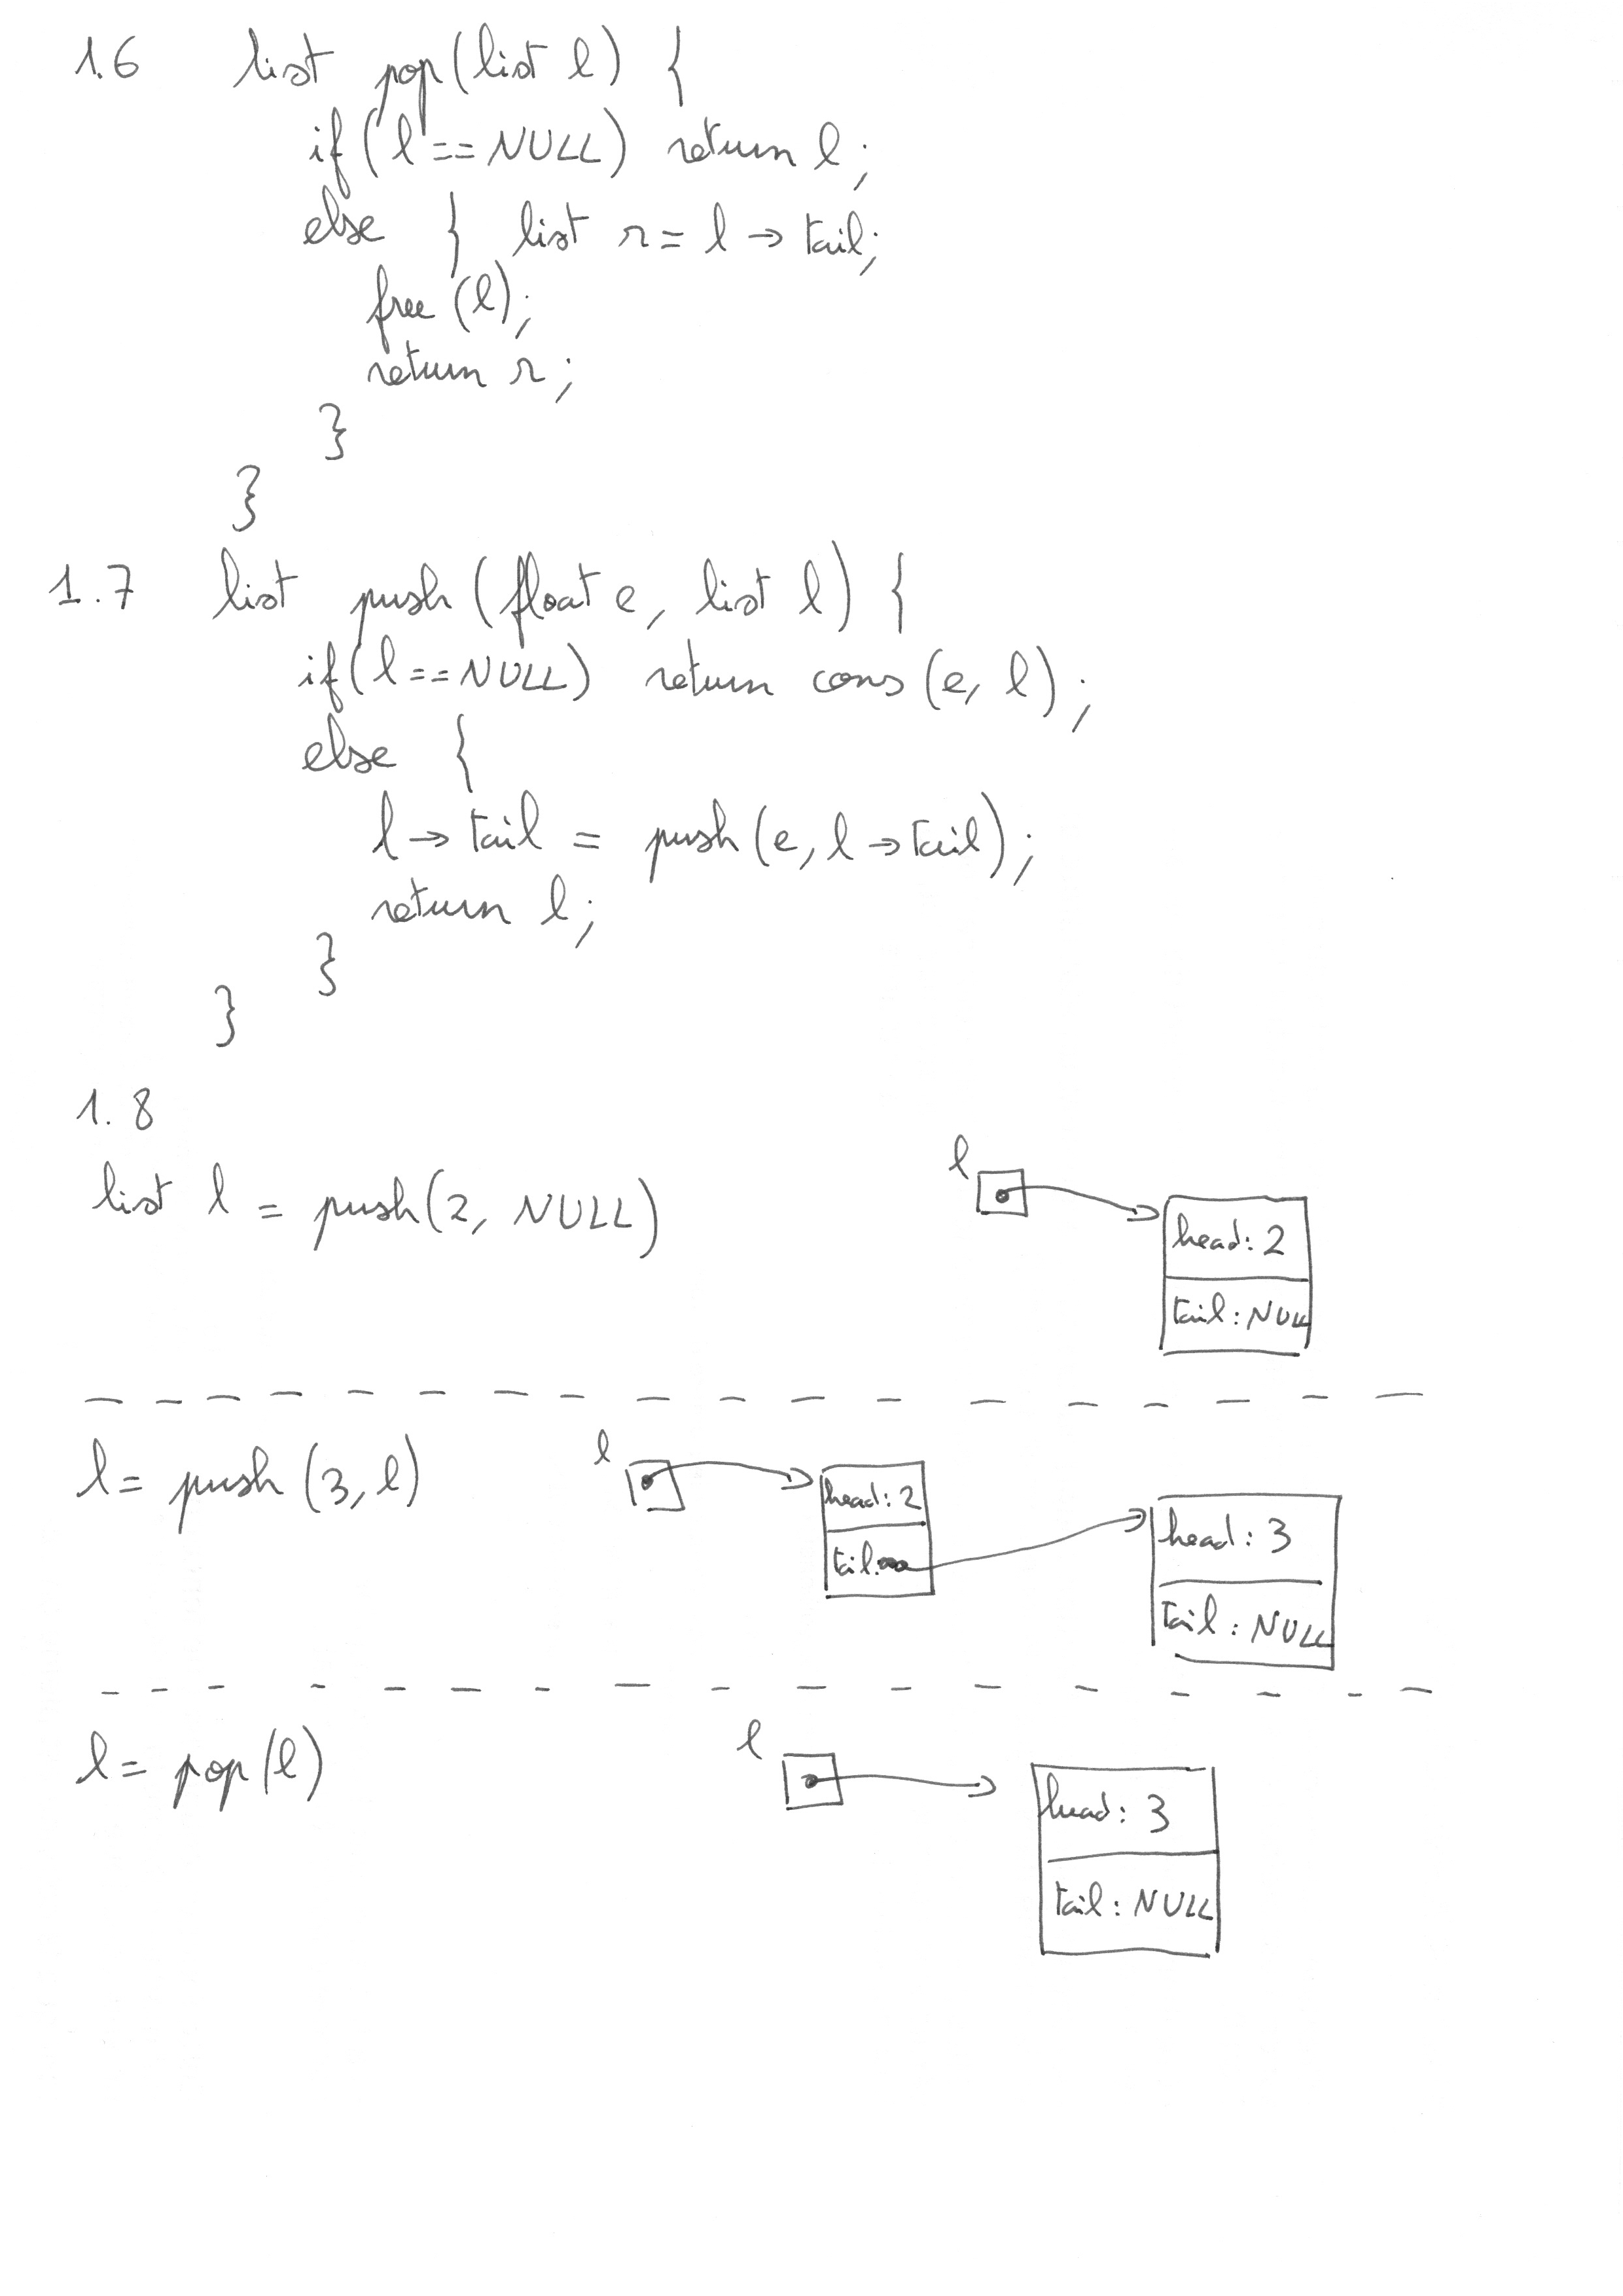 1.6 list pop(list l) {
if(l==NULL) return l;
else { list r = l → tail;
free (l);
return r;
}
}
1.7 list push(float e, list l) {
if(l==NULL) return cons(e, l);
else {
l → tail = push(e, l → tail);
return l;
}
}
1.8
list l = push(2, NULL)
l
head: 2
tail: NULL
l = push (3, l)
l
head: 2
tail:
head: 3
tail: NULL
l = pop(l)
l
head: 3
tail: NULL